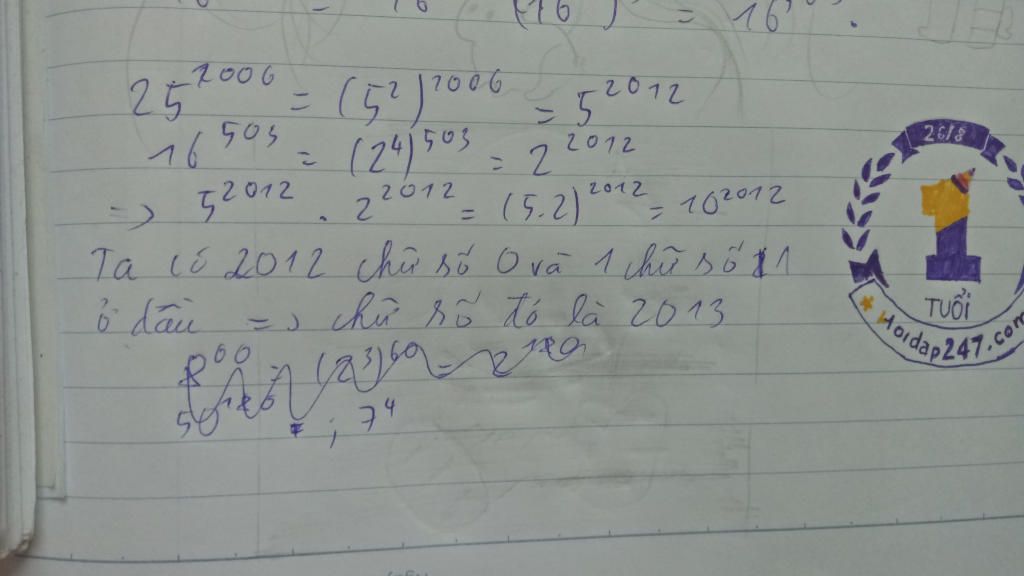 = 16 (16 ) = 16
25^2006 = (5^2)^1006 = 5^2012
16^503 = (2^4)^503 = 2^2012
=> 5^2012 . 2^2012 = (5.2)^2012 = 10^2012
Ta có 2012 chữ số 0 và 1 chữ số 1
ở đầu => chữ số đó là 2013
8^60 = (2^3)^60 = 2^180
; 7^4
2618
1
TUỔI
Hoidap247.com